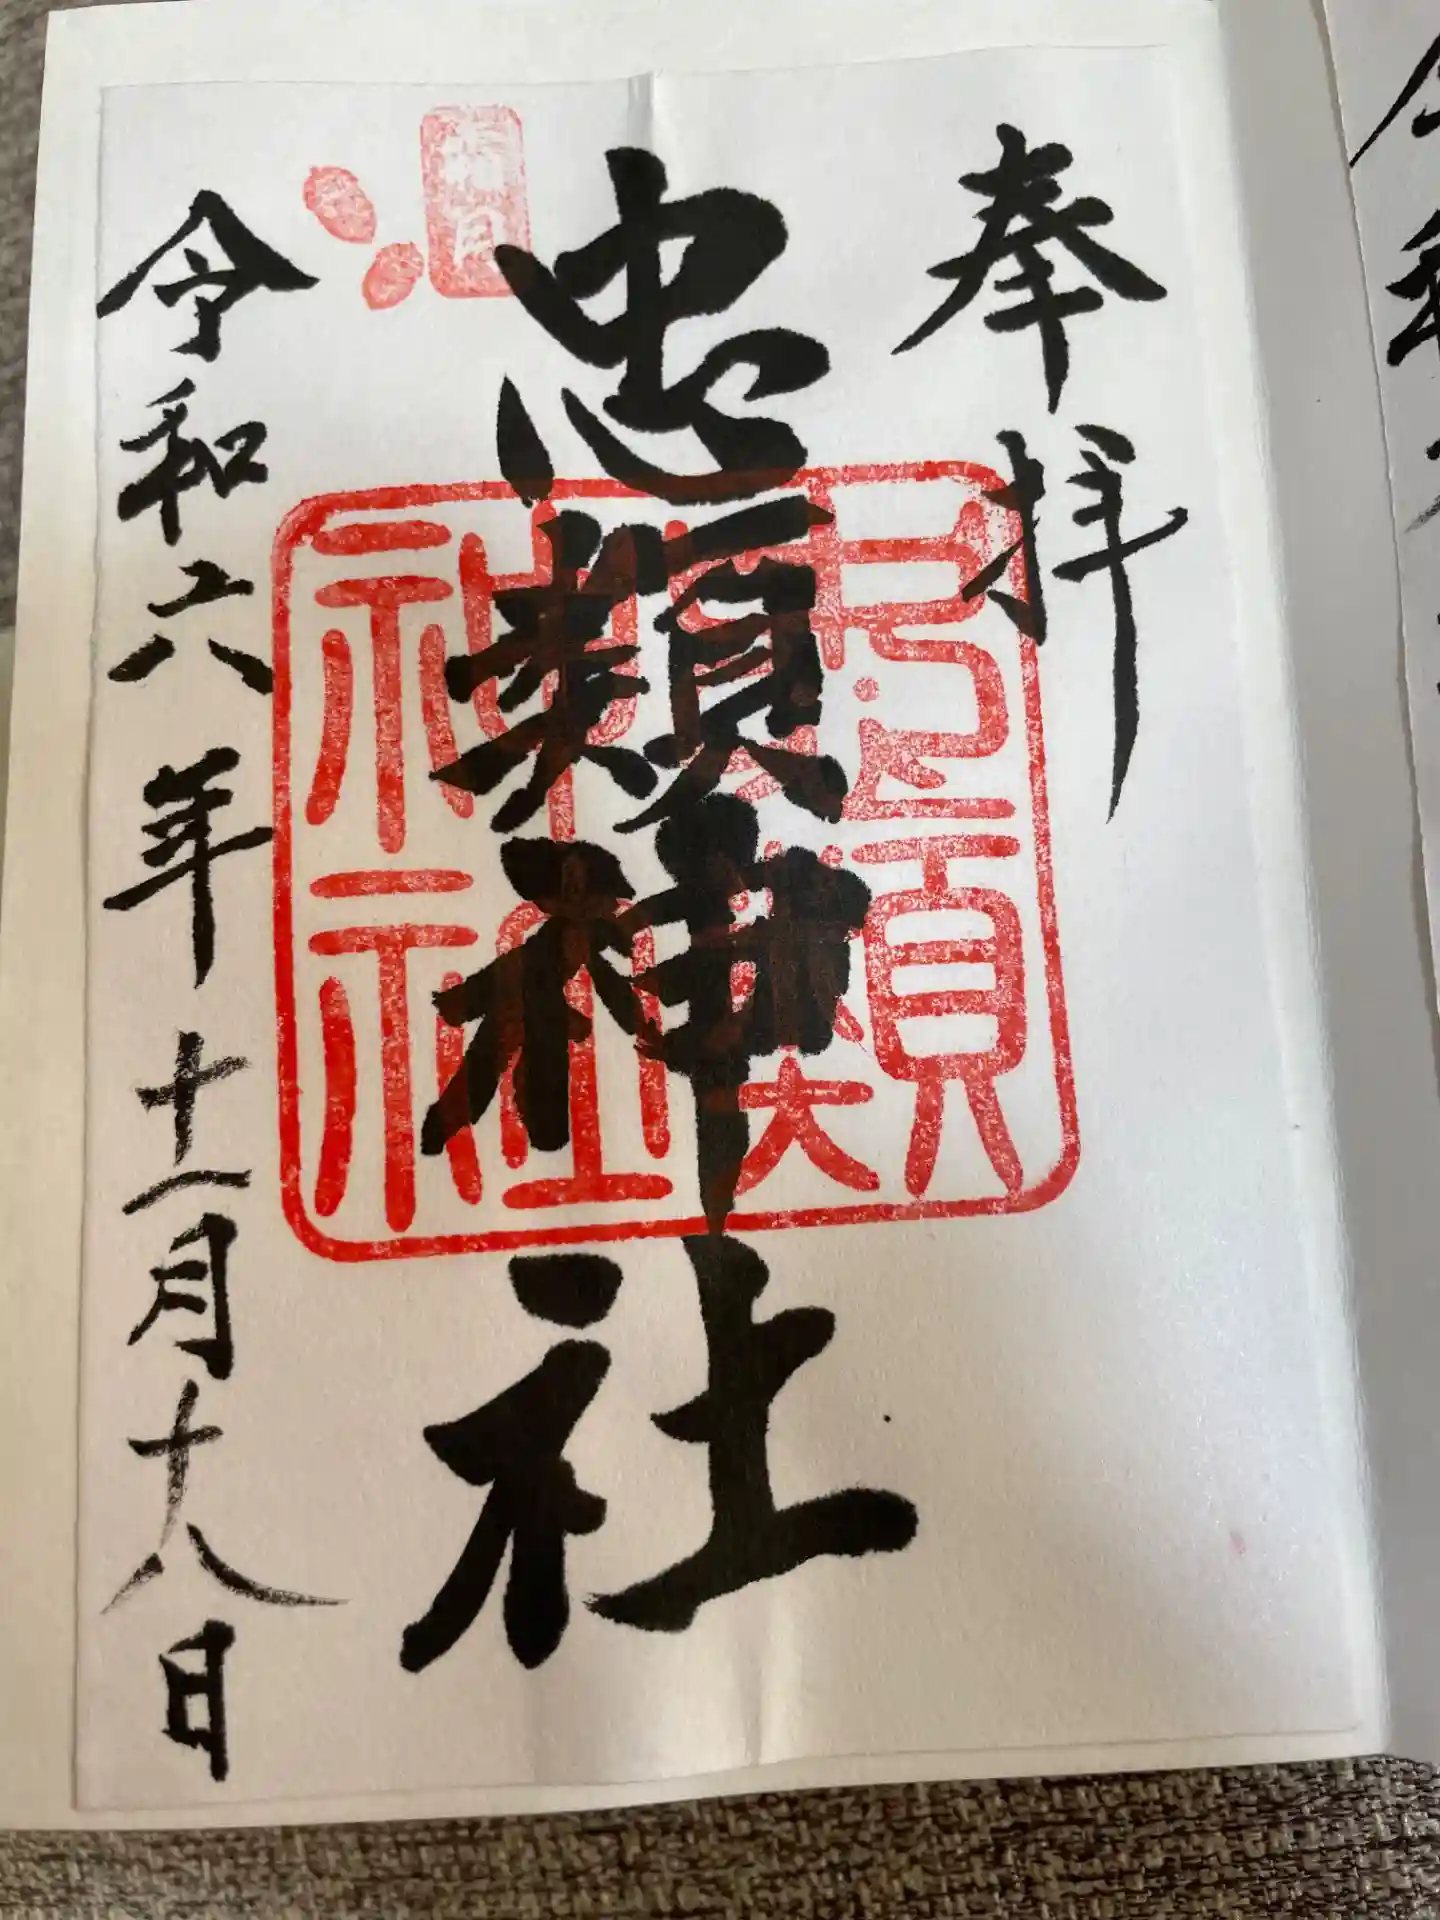 奉拝
忠類神社
忠類神社
令和六年十一月十八日